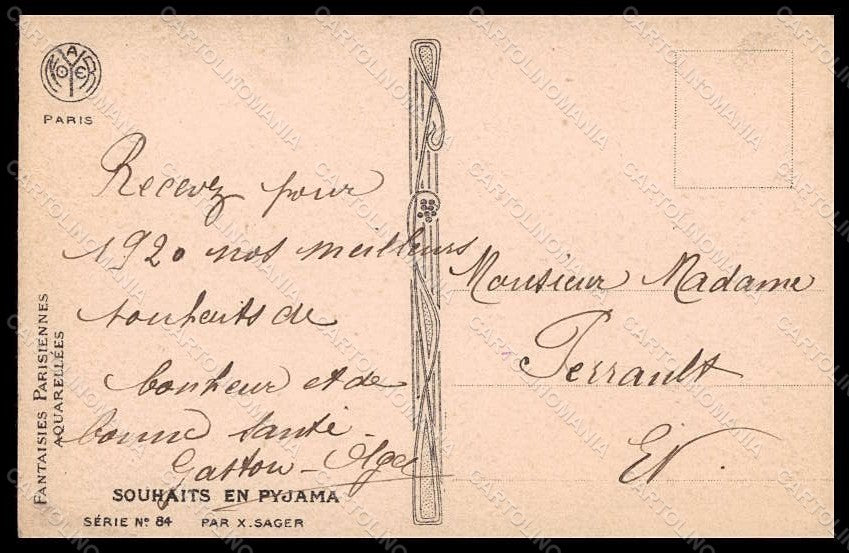 PARIS
Recevez pour
1920 nos meilleurs
souhaits de
bonheur et de
bonne santé
Gaston - Olga
Monsieur Madame
Perrault
EV.
FANTAISIES PARISIENNES
AQUARELLÉES
SOUHAITS EN PYJAMA
SÉRIE No 84 PAR X. SAGER
CARTOLINOMANIA